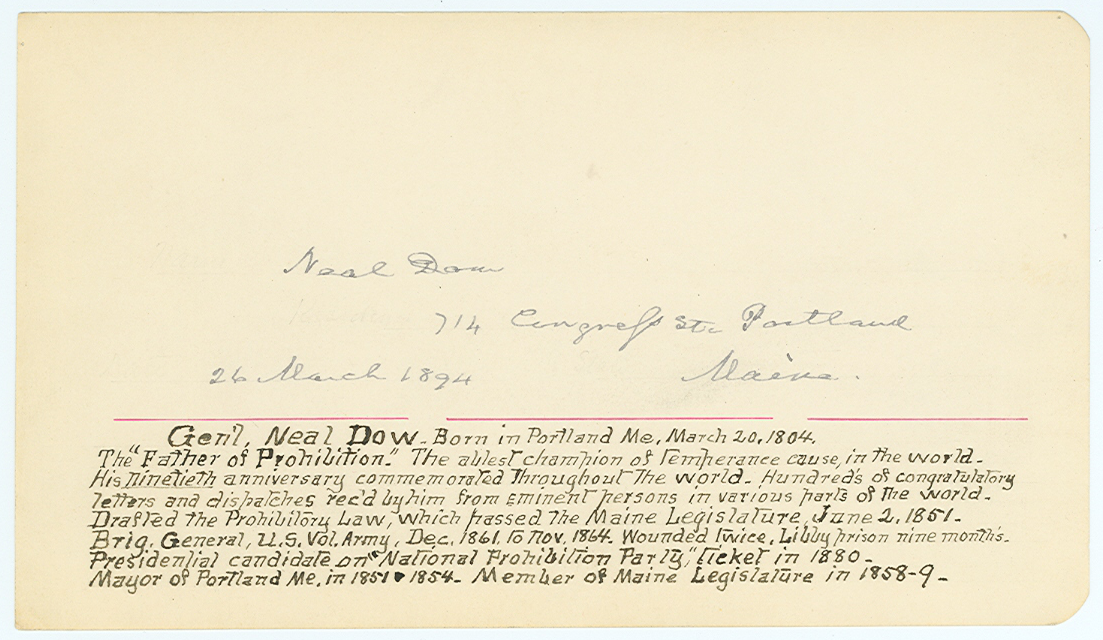 Neal Dow
714 Congress St. Portland
26 March 1894 Maine.
Gen'l, Neal Dow - Born in Portland Me, March 20, 1804.
The "Father of Prohibition." The ablest champion of Temperance cause, in the world -
His ninetieth anniversary commemorated Throughout The world - Hundred's of congratulatory
letters and dispatches rec'd by him from eminent persons in various parts of The world -
Drafted the Prohibitory Law, which passed the Maine Legislature, June 2, 1851 -
Brig. General, U.S. Vol. Army, Dec, 1861, To Nov, 1864. Wounded Twice, Libby prison nine month's -
Presidential candidate on "National Prohibition Party," ticket in 1880 -
Mayor of Portland Me, in 1851 & 1854 - Member of Maine Legislature in 1858-9 -